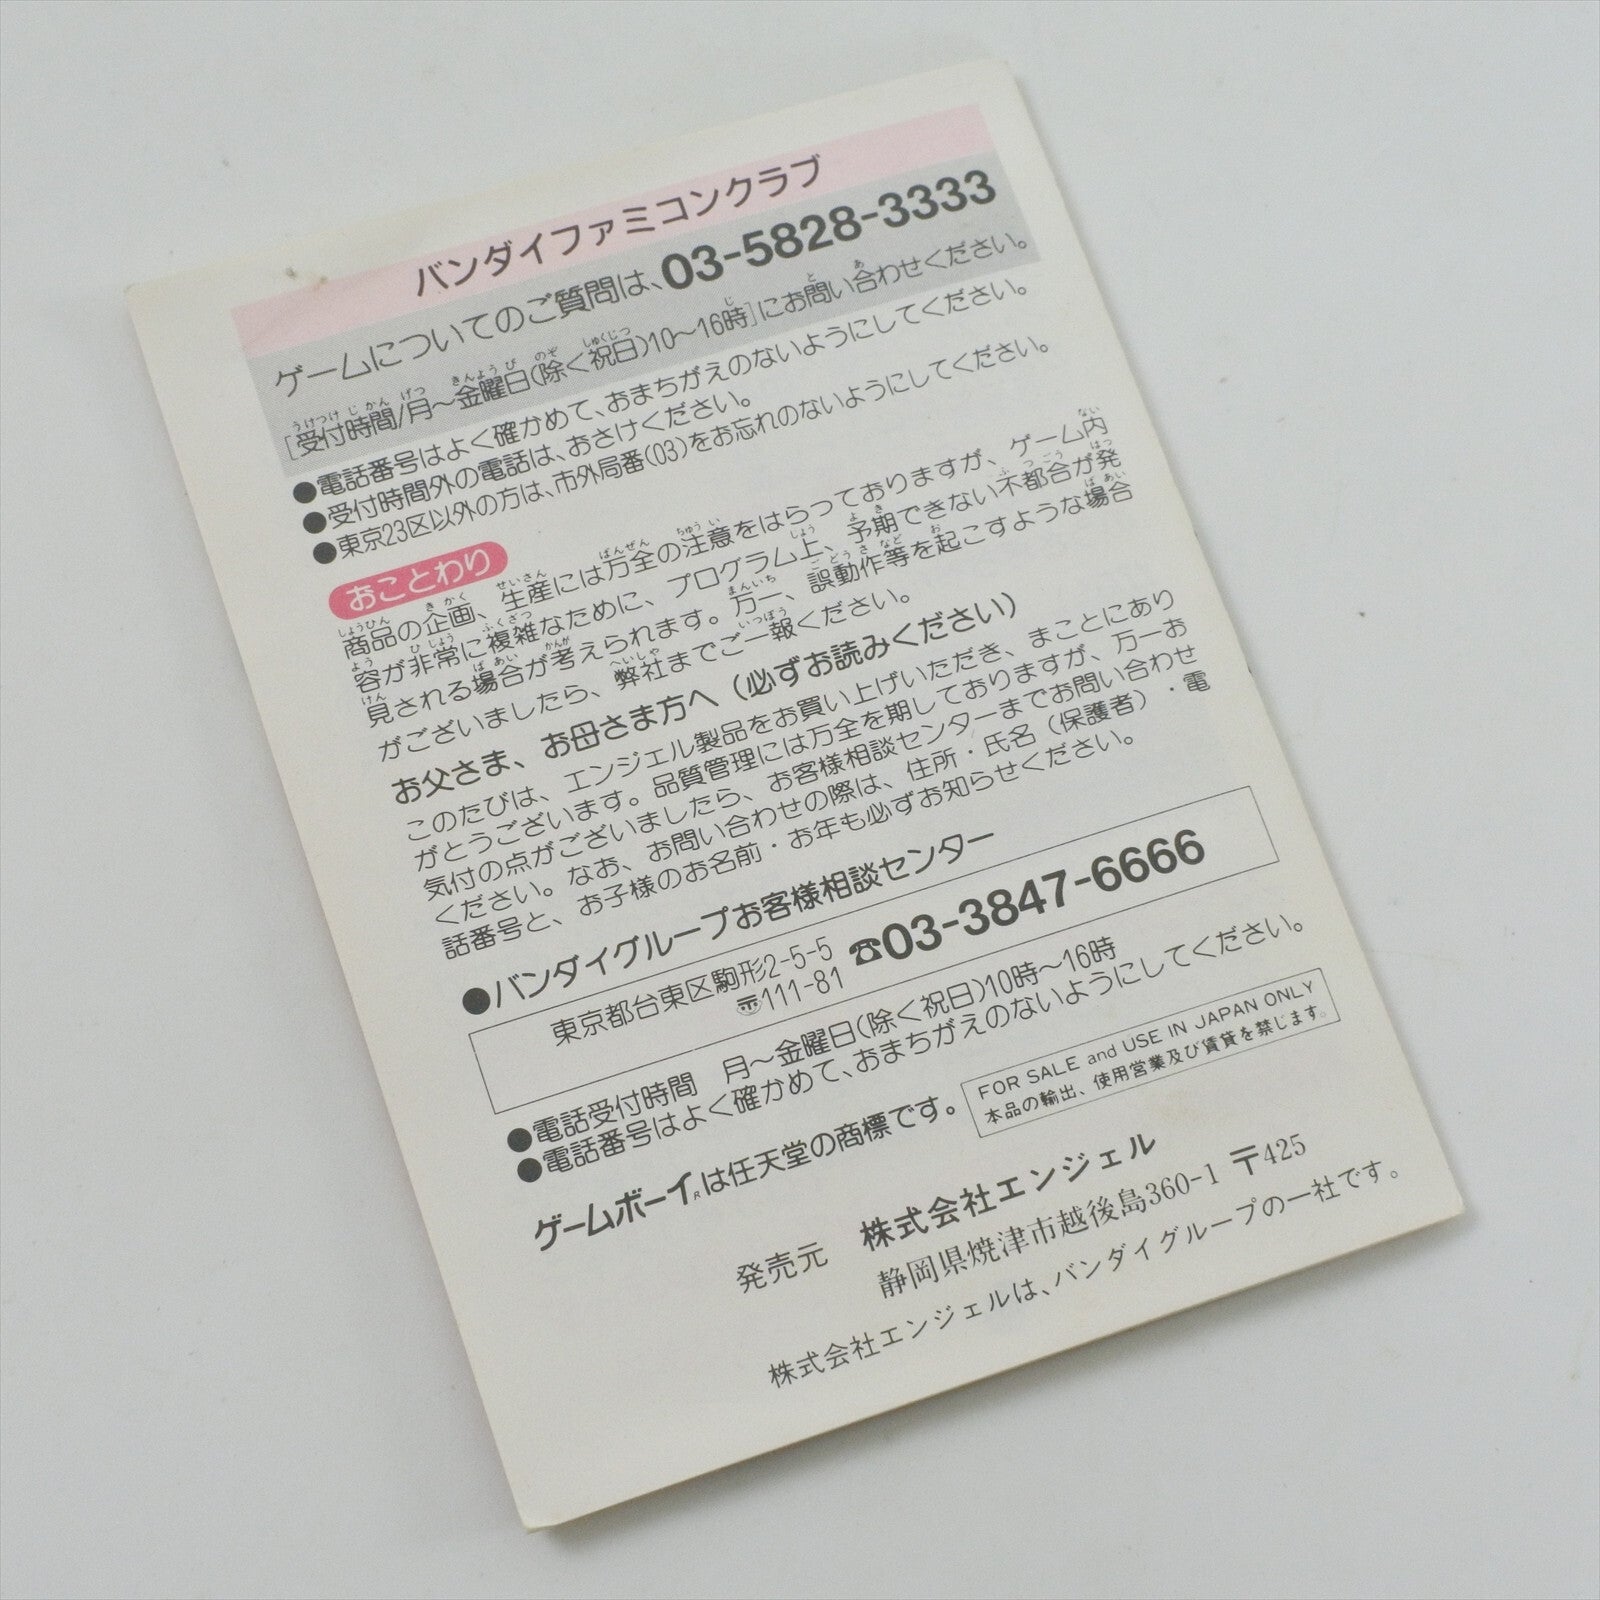 バンダイファミコンクラブ
ゲームについてのご質問は、03-5828-3333
[受付時間/月〜金曜日(除く祝日)10〜16時]にお問い合わせください。
●電話番号はよく確かめて、おまちがえのないようにしてください。
●受付時間外の電話は、おさけください。
●東京23区以外の方は、市外局番(03)をお忘れのないようにしてください。
おことわり
商品の企画、生産には万全の注意をはらっておりますが、ゲーム内
容が非常に複雑なために、プログラム上、予期できない不都合が発
見される場合が考えられます。万一、誤動作等を起こすような場合
がございましたら、弊社までご一報ください。
お父さま、お母さま方へ(必ずお読みください)
このたびは、エンジェル製品をお買い上げいただき、まことにあり
がとうございます。品質管理には万全を期しておりますが、万一お
気付の点がございましたら、お客様相談センターまでお問い合わせ
ください。なお、お問い合わせの際は、住所・氏名(保護者)・電
話番号と、お子様のお名前・お年も必ずお知らせください。
●バンダイグループお客様相談センター
東京都台東区駒形2-5-5
〒111-81
☎03-3847-6666
●電話受付時間 月〜金曜日(除く祝日)10時〜16時
●電話番号はよく確かめて、おまちがえのないようにしてください。
ゲームボーイ®は任天堂の商標です。
FOR SALE and USE IN JAPAN ONLY
本品の輸出、使用営業及び賃貸を禁じます。
発売元 株式会社エンジェル
静岡県焼津市越後島360-1 〒425
株式会社エンジェルは、バンダイグループの一社です。